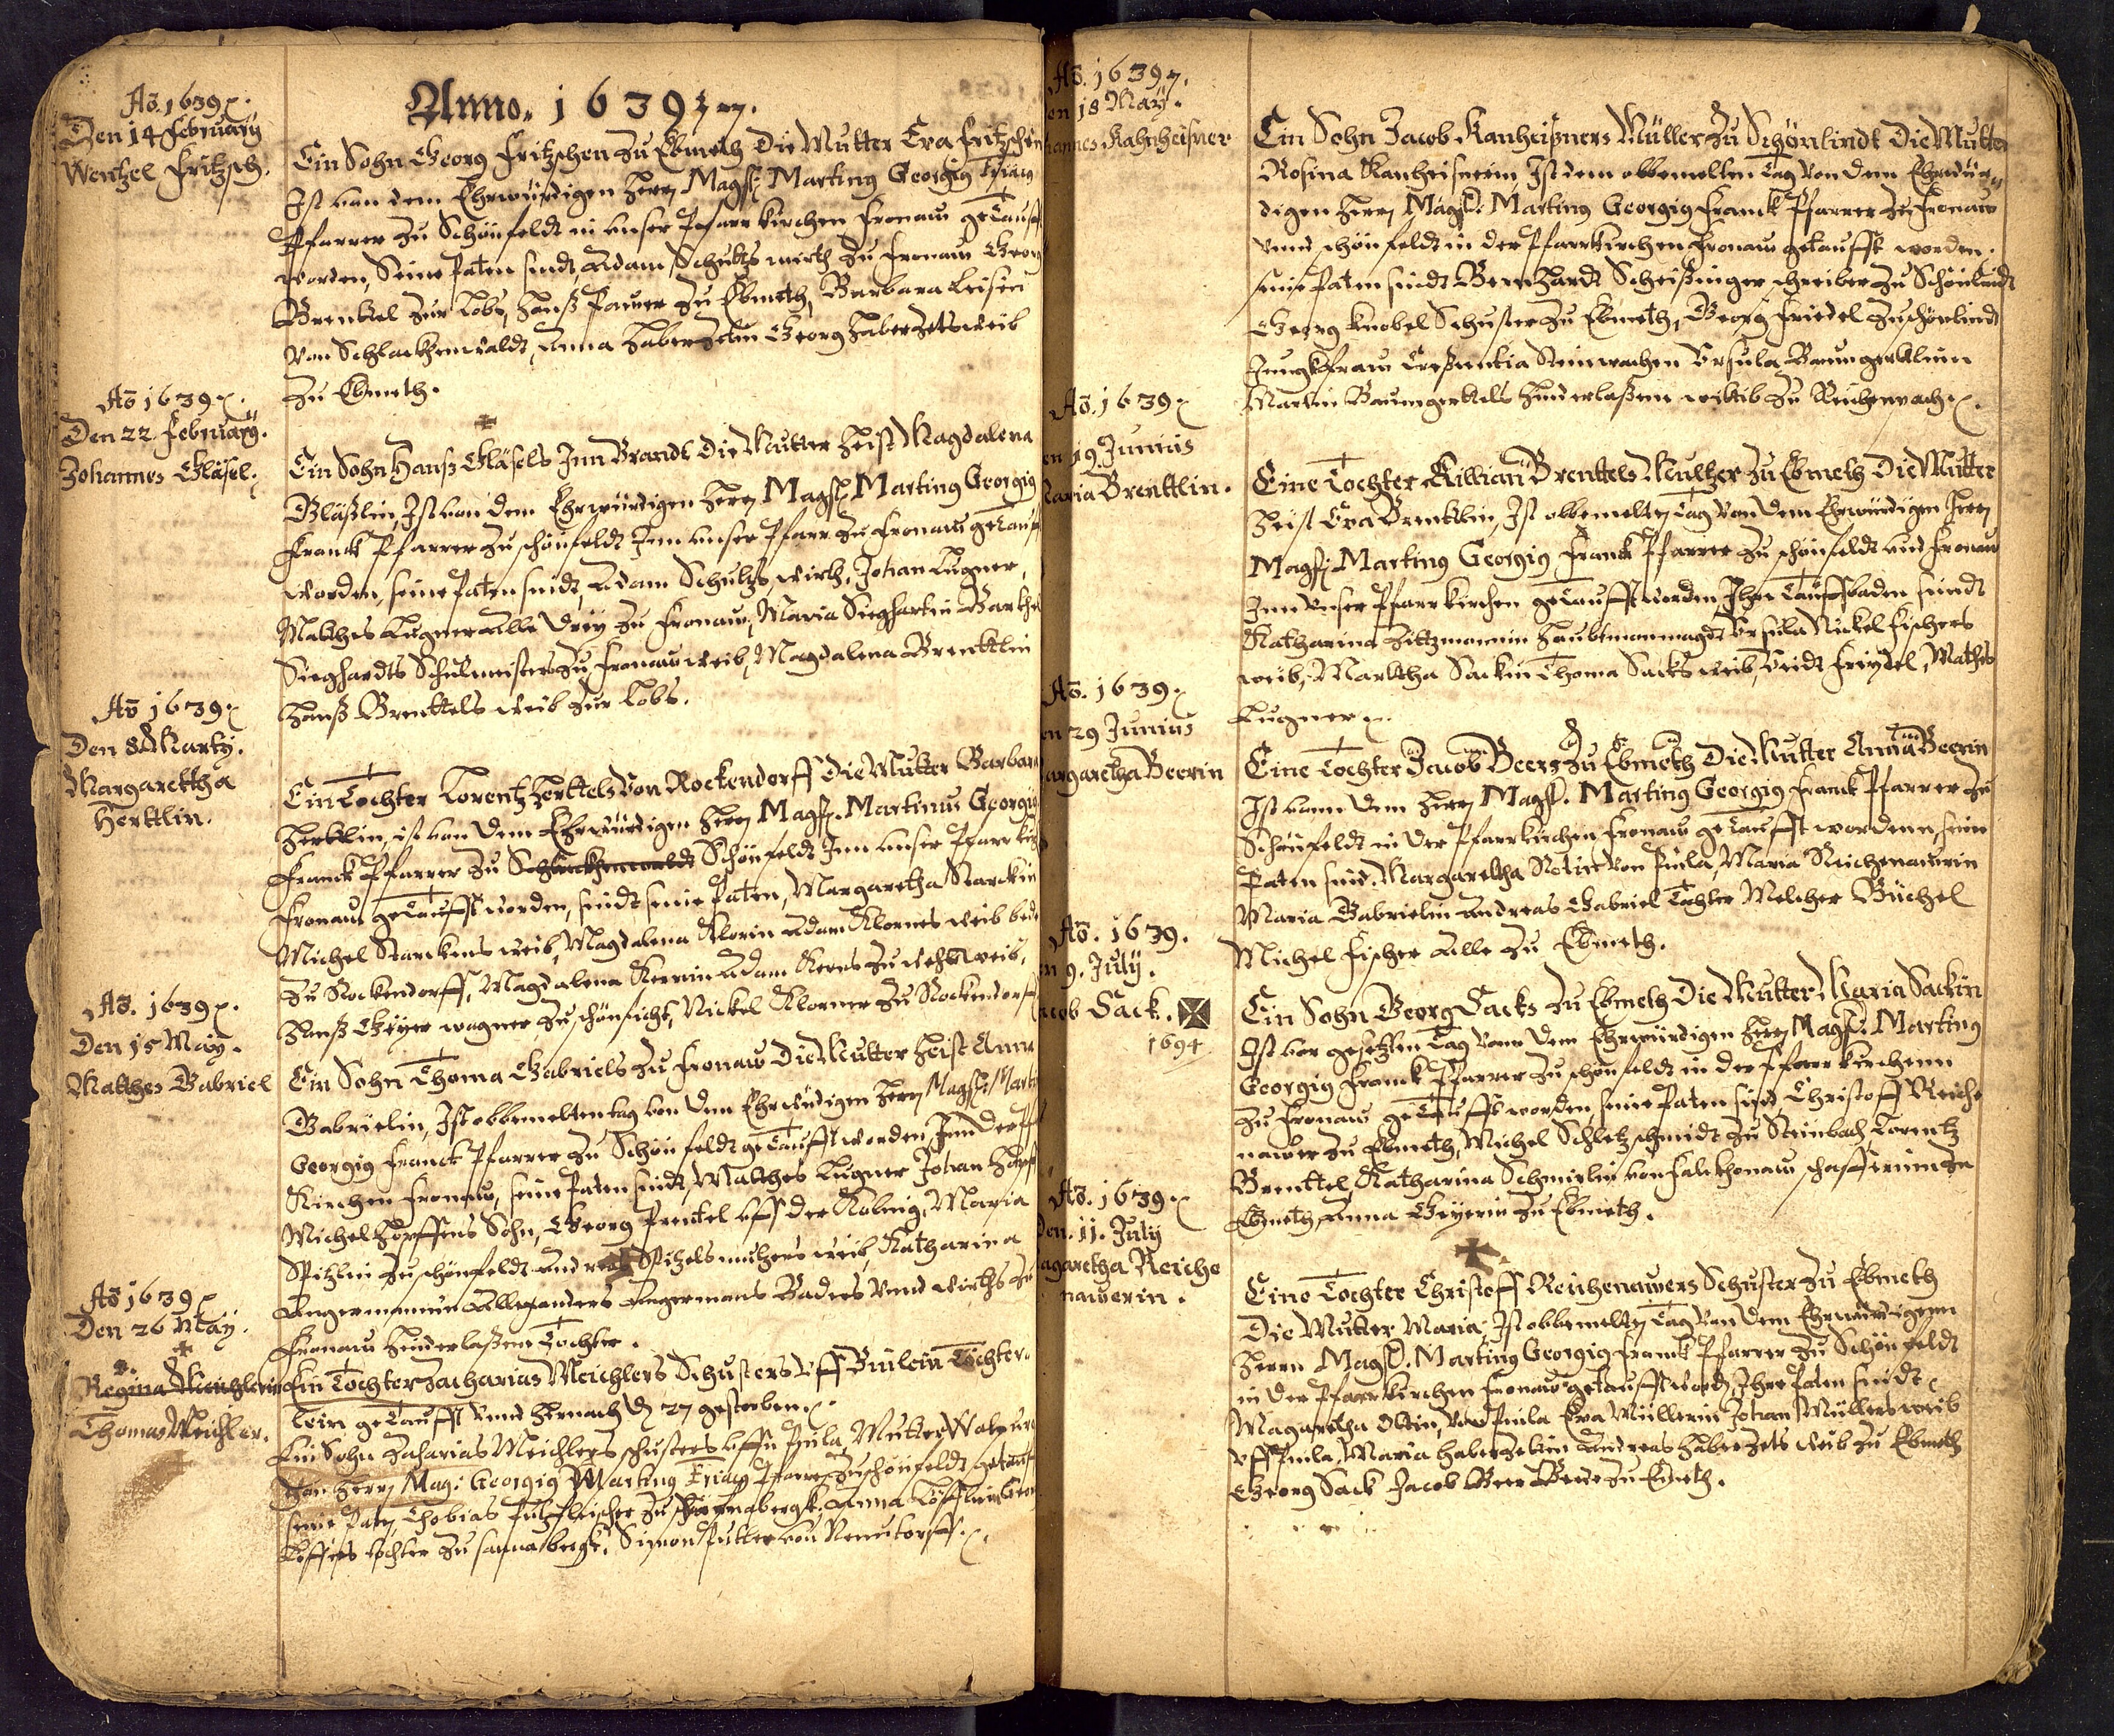 Anno. 1639
Aō. 1639
Den 14 February
Wentzel Fritzsch.
Ein Sohn Georg Fritzschen zu Ebmeth Die Mutter Eva Fritzschin
Ist von dem Ehrwürdigen Herrn Magst. Martinus Georgius
Pfarrer zu Schönfeldt in unser Pfarrkirchen Fronaw getaufft
worden, Seine Paten sindt Adam Schultz wirth zu Fronaw Georg
Brenttel zur Lobs, Hanß Pawer zu Ebmeth, Barbara
Von Schlackhenwaldt, Anna Haberzetlin Georg Haberzetls weib
zu Ebmeth.
Aō 1639
Den 22 February.
Johannes Gläsel.
Ein Sohn Hanß Gläsels Inn Brandt Die Mutter heist Magdalena
Gläßlin, Ist von dem Ehrwürdigen Herrn Magst. Martinus Georgius
Franck Pfarrer zu schönfeldt Inn unser Pfarr zu Fronaw getaufft
worden, seine Paten sindt, Adam Schultz, wirth, Johan Lugner,
Matthes Lugner alle drey zu Fronaw, Maria Sieghartin
Sieghardts Schulmeisters zu Fronaw weib, Magdalena Brenttlin
Hanß Brenttels weib zur Lobs.
Aō 1639
Den 8 Marty.
Margarettha
Herttlin.
Ein Tochter Lorentz Herttels Von Rockendorff Die Mutter Barbara
Herttlin, ist von dem Ehrwürdigen Herrn Magst. Martinus Georgius
Franck Pfarrer zu Schlackhenwaldt Schönfeldt Inn unser Pfarrkirch
Fronaw getaufft worden, sindt seine Paten, Margaretha Starckin
Michel Starckens weib, Magdalena Klorin Adam Klornes weib bede
zu Rockendorff, Magdalena Kernin Adam Kerns zu weib,
Hanß Geyer wagner zu schönficht, Nickel Klorner zu Rockendorff
Aō. 1639
Den 15 May.
Matthes Gabriel
Ein Sohn Thoma Gabriels zu Fronaw Die Mutter heist Anna
Gabrielin, Ist obbemelten tag von dem Ehrwürdigen Herrn Magst. Martinus
Georgius Franck Pfarrer zu Schönfeldt getaufft worden Inn der Pfarr
Kirchen Fronaw, seine Paten sindt, Matthes Lugner Johan
Michel Sohn, Georg Prentel uff der Maria
Spitzlin zu schönfeldt Andreas Spitzels weib, Katharina
Angermannin Angermans Baders Unnd wirths zu
Fronaw hinderlaßene Tochter.
Aō 1639
Den 26 May.
Regina Meichlerin
Ein Tochter Zacharias Meichlers Schusters Uff Tochter
getaufft unnd hernach d 27 gestorben.
Thomas Meichler.
Ein Sohn Zacharias Meichlers schusters uffn Pula, Mutter
Von Herrn Mag: Georgius Martinus Pfarrer zu schönfeldt getaufft
seine Paten, Thobias zu Anna Löfflerin
Löfflers tochter zu Simon
Aō. 1639
18 May.
Kahnheisner
Ein Sohn Jacob Kanheißners Müller zu Schönlindt Die Mutter
Rosina Kanheisnerin, Ist dem obbemelten Tag von dem Ehrwür-
digen Herrn Magst. Martinus Georgius Franck Pfarrer zu Fronaw
Unnd schönfeldt in der Pfarrkirchen Fronaw getaufft worden.
seine Paten sindt Bernhardt Scheißinger schreiber zu Schönlindt
Georg Knobel Schuster zu Ebmeth, Georg Friedel zu schönlindt
Jungkfraw Ursula Baumgerttlin
Martin Baumgerttels hinderlaßene wittib zu Reichenbach.
Aō. 1639
19. Junius
Maria Brenttlin.
Eine Tochter Killian Brenttels zu Ebmeth Die Mutter
heist Eva Brenttlin, Ist obbemelten Tag von dem Ehrwürdigen Herrn
Magst. Martinus Georgius Franck Pfarrer zu schönfeldt und Fronaw
Inn unser Pfarrkirchen getaufft worden Ihre Tauffpaden sindt
Katharina Ursula Nickel Fischers
weib, Marttha Sackin Thoma Sacks weib, Veidt Mathes
Lugner
Aō. 1639
29 Junius
Margaretha Beerin
Eine Tochter Jacob Beers zu Ebmeth Die Mutter Anna Beerin
Ist vonn dem Herrn Magst. Martinus Georgius Franck Pfarrer zu
Schönfeldt in der Pfarrkirchen Fronaw getaufft wordenn, seine
Paten sind. Margaretha von Pula, Maria Reichenawerin
Maria Gabrielin Andreas Gabriel Tochter Melcher Büchel
Michel Fischer Alle zu Ebmeth.
Aō. 1639.
9. July.
Jacob Sack.
1694
Ein Sohn Georg Sacks zu Ebmeth Die Mutter Maria Sackin
Ist vor gesetzten Tag vonn dem Ehrwürdigen Herrn Magst. Martinus
Georgius Franck Pfarrer zu schönfeldt in der Pfarrkirchenn
zu Fronaw getaufft worden seine Paten sind Christoff Reiche
nawer zu Ebmeth, Michel Schletz schmidt zu Steinbach, Lorentz
Brenttel, Katharina von Falckhonaw
Ebmeth, Anna Geyerin zu Ebmeth.
Aō. 1639
Den. 11. July
Magaretha Reiche
nawerin.
Eine Tochter Christoff Reichenawers Schuster zu Ebmeth
Die Mutter Maria, Ist obbemelten Tag von dem Ehrwürdigenn
Herrn Magst. Martinus Georgius Franck Pfarrer zu Schönfeldt
in der Pfarrkirchen Fronaw getaufft word, Ihre Paten sindt
Magaretha von Pula Eva Müllerin Johan Müllers weib
uff Pula, Maria haberzetlin Andreas haberzetls weib zu Ebmeth
Georg Sack Jacob Beer Bede zu Ebmeth.